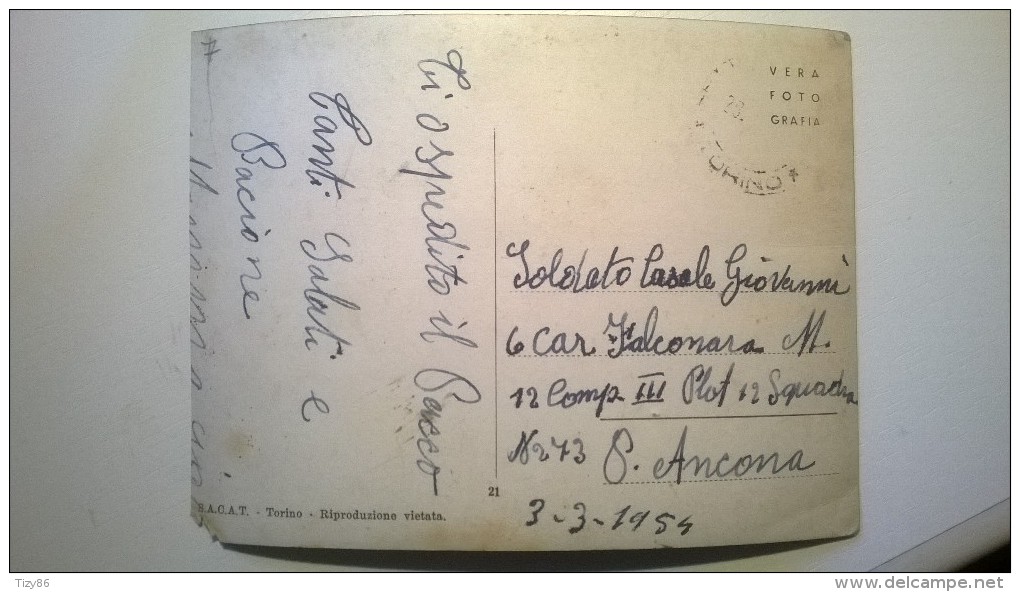 Ti o spedito il Pacco
Tanti Saluti e
Bacione
VERA
FOTO
GRAFIA
TORINO
Soldato Casale Giovanni
6 Car Falconara M.
12 Comp III Plot 12 Squadra
N 273 P. Ancona
3-3-1954
21
S.A.C.A.T. - Torino - Riproduzione vietata.
Tizy86
www.delcampe.net